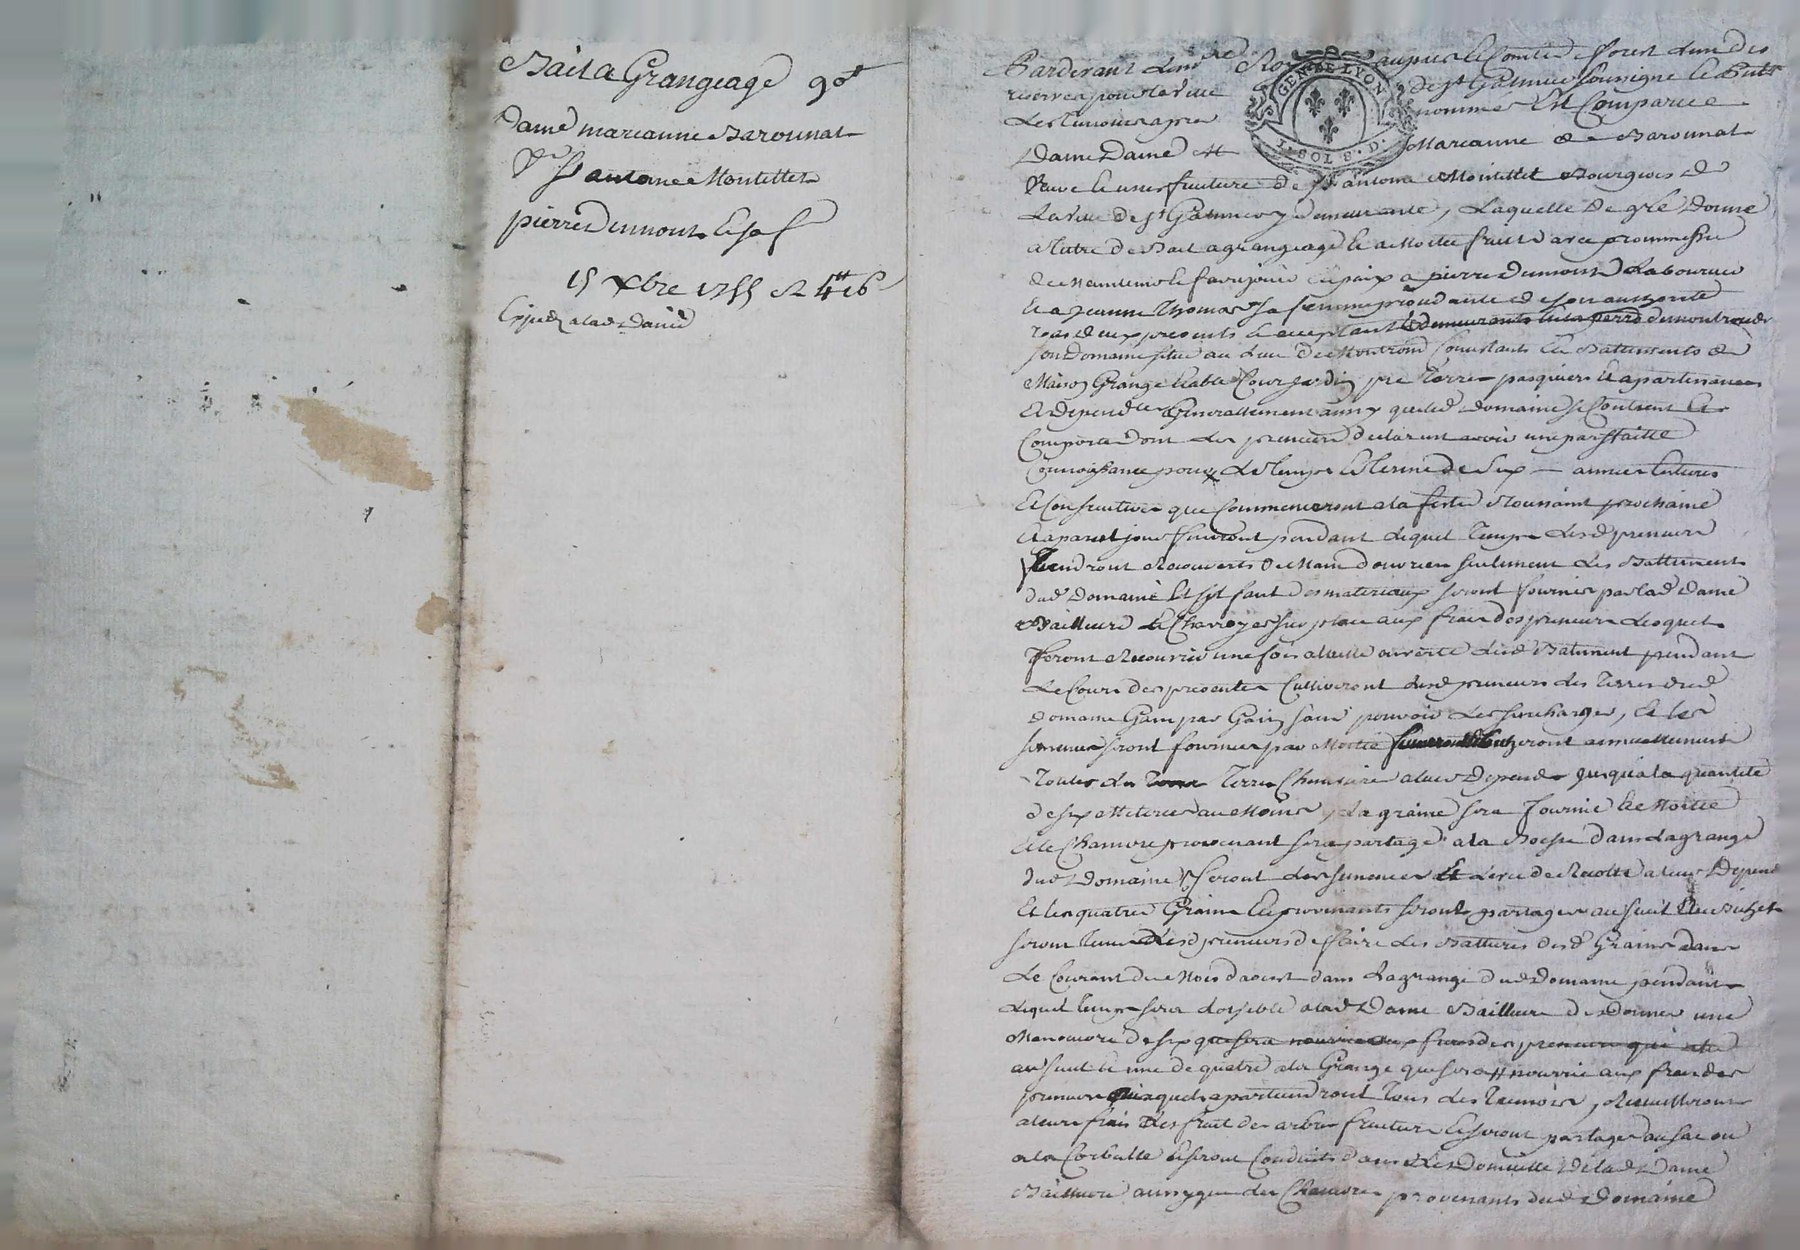 Bail a Grangeage 98
Dame marianne Barounat
Ve Sr antoine Montellet
pierre Dumont et sa f
15 Xbre 1755 et 4tt 16s
Expédié a lad Dame
Pardevant Le nre Ro aupais et Comté de forest L'un des
reservés pour la ville de St Galmier soussigné et Présts
Les Temoins apres nommés Est Comparue
GEN DE LYON
1. SOL 8. D.
Dame Dame Marianne de Barounat
Veuve et usufruitiere de Sr antoine Montellet Bourgeois de
La ville de St Galmier y demeurante, Laquelle De gré Donne
a titre De Bail a grangeage et a Moitié fruits avec promesse
de Maintenir et faire jouir en paix a pierre Dumont Laboureur
et a jeanne Thomas sa femme procédante de son authorité
tous deux presents et acceptant et demeurants en la perre de montrond
son Domaine situé au Lieu De Montrond Consistants en Battiments de
Maison Grange Etable Cour jardin pré Terres pasquiers et apartenances
et Dependces Generallement ainsy que led Domaine se Contient et
Comporte dont Les preneurs declarent avoir une parfaitte
Connoissance pour Le Temps et Terme de Six annees Entieres
et Consecutives que Commenceront a la feste Toussaint prochaine
et a pareil jour finiront pendant Lequel Temps Lesd preneurs
Tiendront Recouverts de Main d'ouvrier seulement Les Battiments
dud Domaine Et s'il faut Des materiaux seront fournis par lad Dame
Bailleure et Charroyés sur place aux frais des preneurs Lesquels
feront Recouvrir une fois a taille ouverte Lesd Batiment pendant
Le Cours des presentes Cultiveront Lesd preneurs Les Terres dud
domaine Gain par Gain sans pouvoir Les surcharger, et Les
semences seront fournies par Moitié seront annuellement
Toutes Les Terres Chenevieres a leurs Depends jusqu'a la quantité
de six Meterées au Moins, La graine sera fournie de Moitié
et le Chanvre provenant sera partagé a la Boësse dans La grange
dud Domaine, feront Les semences Et Levée de Recolte a leurs Depend
Et les quatre Grains En provenants seront partagés au sueil
seront Tenus Lesd preneurs de faire Les Battures desd Grains dans
Le Courant du Mois d'aoust dans La grange dud Domaine pendant
Lequel Temps sera Loisible a lad Dame Bailleure de Donner une
Manoeuvre de six que sera nourrie aux frais des preneurs qui
au sueil et une de quatre a la Grange que sera nourrie aux frais des
preneurs auxquels apartiendront Tous Les Temoirs, Recuilliront
a leurs frais Les fruit des arbres fruitiers et seront partagés au sac ou
a la Corbeille et seront Conduits dans Le Domicille de lad Dame
Bailleure ainsy que Les Chanvres provenants dud Domaine